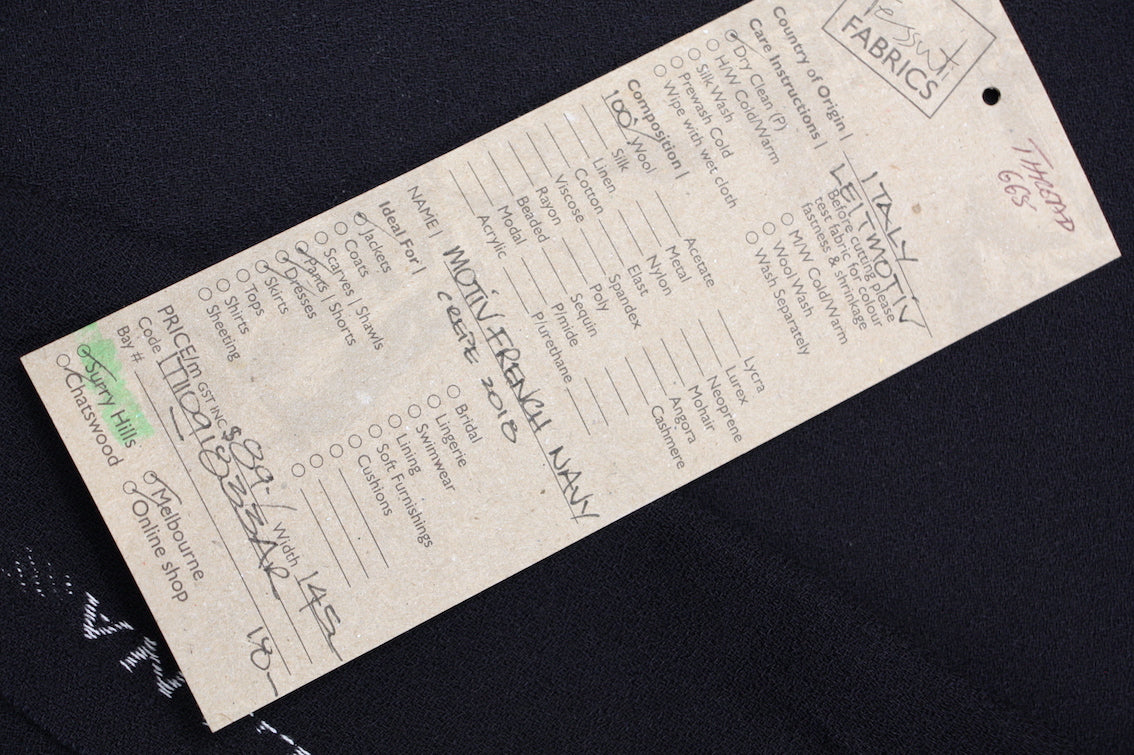 Tessuti
FABRICS
THREAD
665
Country of Origin | ITALY
LEITMOTIV
Care Instructions | Before cutting please
test fabric for colour
fastness & shrinkage
Dry Clean (P)
H/W Cold/Warm
Silk Wash
Prewash Cold
Wipe with wet cloth
M/W Cold/Warm
Wool Wash
Wash Separately
Composition |
100% Wool
Silk
Linen
Cotton
Viscose
Rayon
Beaded
Modal
Acrylic
Acetate
Metal
Nylon
Elast
Spandex
Poly
Sequin
P/mide
P/urethane
Lycra
Lurex
Neoprene
Mohair
Angora
Cashmere
NAME | MOTIV FRENCH NAVY
CREPE 2018
Ideal For |
Jackets
Coats
Scarves | Shawls
Pants | Shorts
Dresses
Skirts
Tops
Shirts
Sheeting
Bridal
Lingerie
Swimwear
Lining
Soft Furnishings
Cushions
PRICE/m GST INC $89-/ Width 145
Code
Bay # 18
Surry Hills
Chatswood
Melbourne
Online shop